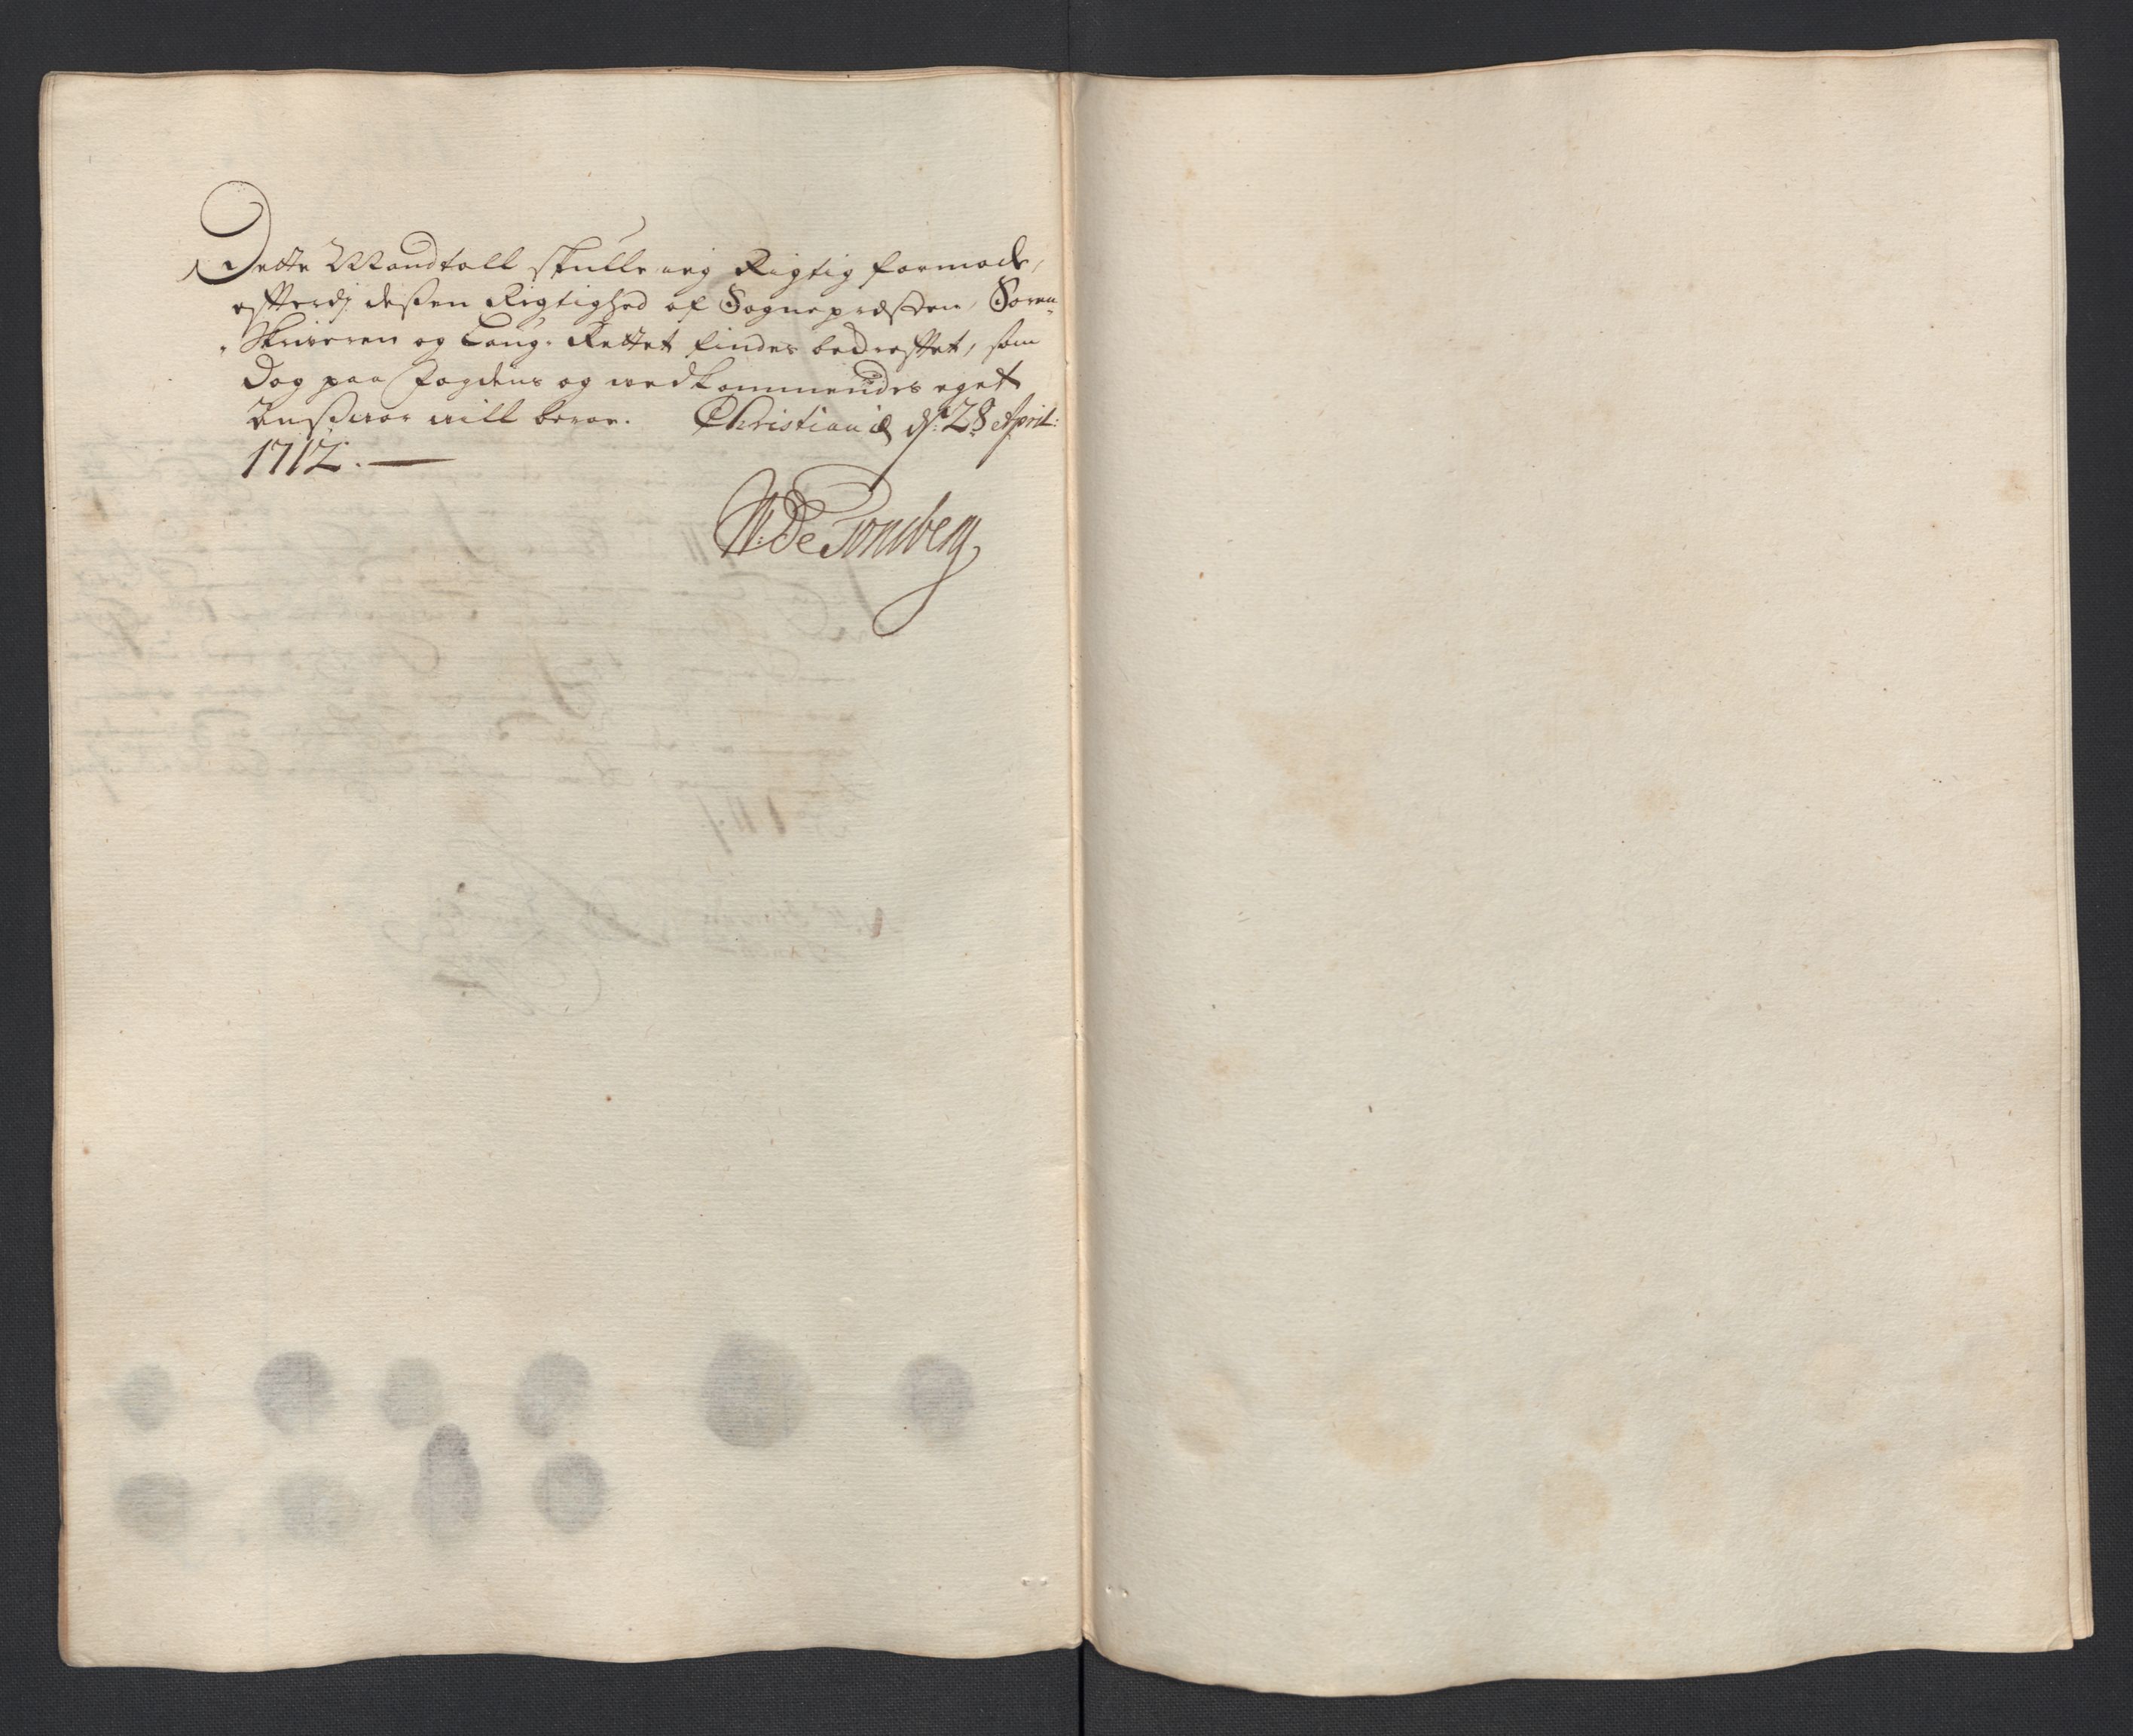 Dette Mandtall skulle ieg Rigtig formode,
efterdj deßen Rigtighed af Sognepræsten, Soren-
Skriveren og Laug-Rettet findes bekreftet, som
dog paa Fogdens og vedkommendes eget
Ansvar vill beroe. Christianiæ d: 28 April:
1712.
W: De Tonsberg